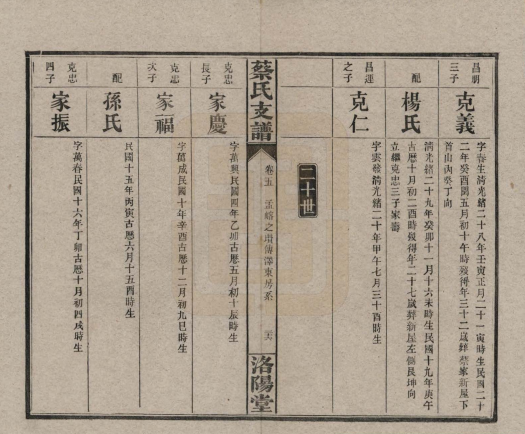 昌朝
三子
克義
字春生清光緒二十八年壬寅正月二十一寅時生民國二十
二年癸酉閏五月初十午時歿得年三十二歲葬蔡家新屋下
首山內癸丁向
配
楊氏
清光緒二十九年癸卯十一月十六未時生民國十九年庚午
古曆十月初二酉時歿得年二十七歲葬新屋左側艮坤向
立繼克忠三子家壽
昌運
之子
克仁
字雲發清光緒二十年甲午七月三十酉時生
二十世
蔡氏支譜
卷五
孟
之
傳澤東房系
洛陽堂
克忠
長子
家慶
字萬興民國四年乙卯古曆五月初十辰時生
克忠
次子
家福
字萬成民國十年辛酉古曆十二月初九巳時生
配
孫氏
民國十五年丙寅古曆六月十五酉時生
克忠
四子
家振
字萬春民國十六年丁卯古曆十月初四戌時生